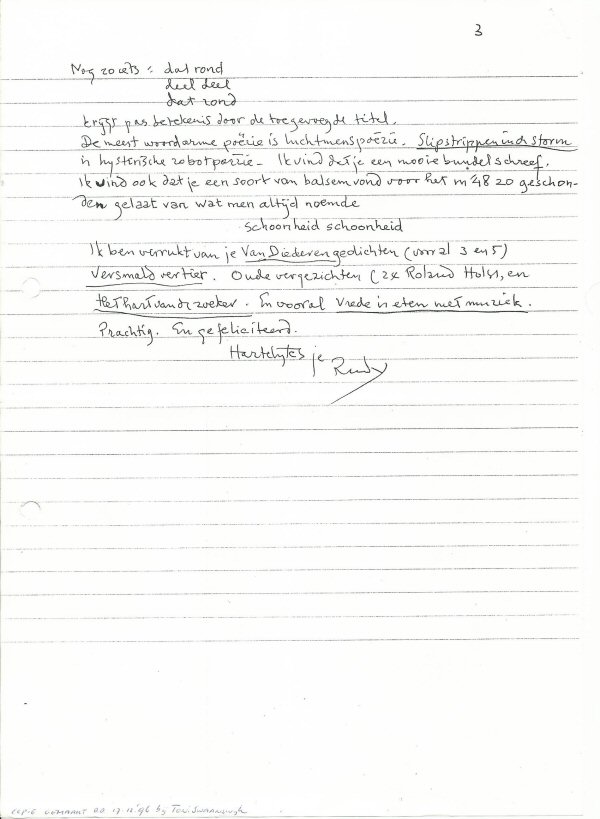 3
Nog zoiets: dat rond
deel deel
dat rond
krijgt pas betekenis door de toegevoegde titel.
De meest woordarme poëzie is luchtmenspoëzie. Slipstrippen in de storm
is hysterische robotpoëzie - Ik vind dat je een mooie bundel schreef.
Ik vind ook dat je een soort van balsem vond voor het in '48 zo geschon-
den gelaat van wat men altijd noemde
schoonheid schoonheid
Ik ben verrukt van je Van Diederengedichten (vooral 3 en 5)
Versmald vertier. Oude vergezichten (2x Roland Holst, en
Het hart van de zoeker. En vooral Vrede is eten met muziek.
Prachtig. En gefeliciteerd.
Hartelijks je Rudy
COPIE GEMAAKT OP 17-12-'96 bij TON